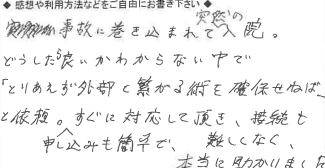 ◆ 感想や利用方法などをご自由にお書き下さい ◆
突然の
事故に巻き込まれて入院。
どうしたら良いかわからない中で
「とりあえず外部と繋がる術を確保せねば」
と依頼。すぐに対応して頂き、接続も
申し込みも簡単で、難しくなく、
本当に助かりました